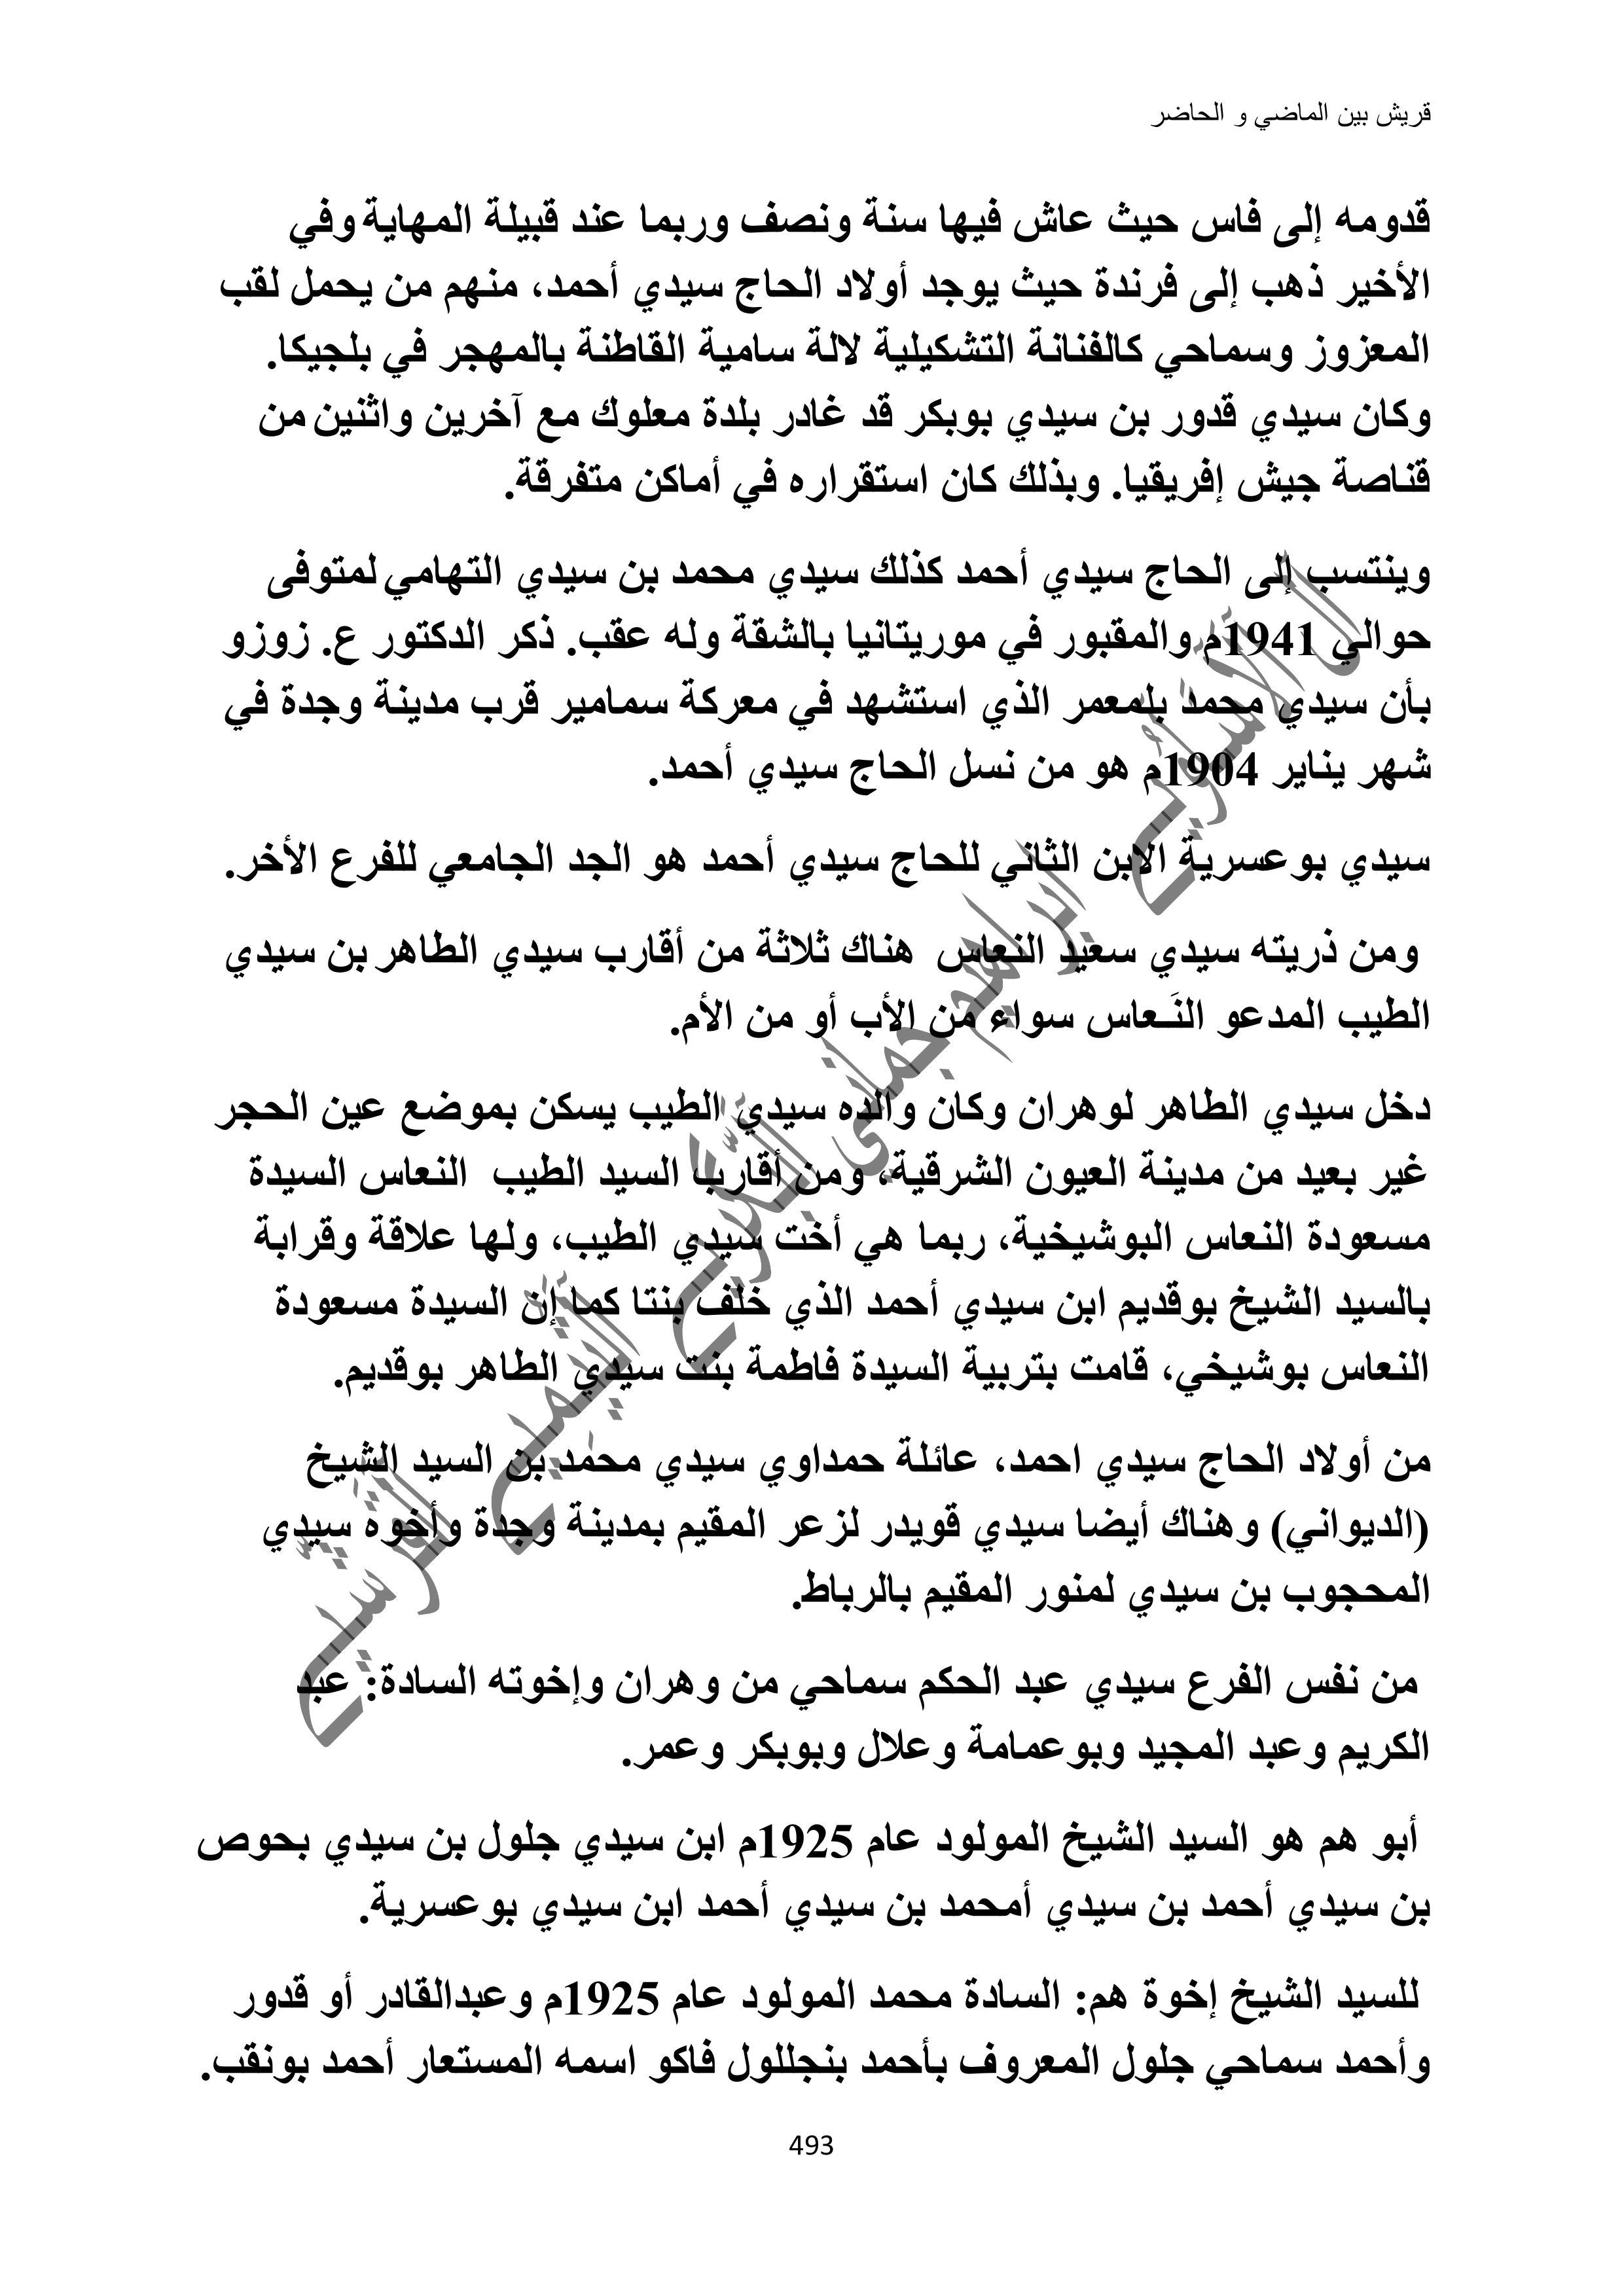 قريش بين الماضي و الحاضر
قدومه إلى فاس حيث عاش فيها سنة ونصف وربما عند قبيلة المهاية وفي
الأخير ذهب إلى فرندة حيث يوجد أولاد الحاج سيدي أحمد، منهم من يحمل لقب
المعزوز وسماحي كالفنانة التشكيلية لالة سامية القاطنة بالمهجر في بلجيكا.
وكان سيدي قدور بن سيدي بوبكر قد غادر بلدة معلوك مع آخرين واثنين من
قناصة جيش إفريقيا. وبذلك كان استقراره في أماكن متفرقة.
وينتسب إلى الحاج سيدي أحمد كذلك سيدي محمد بن سيدي التهامي لمتوفى
حوالي 1941م والمقبور في موريتانيا بالشقة وله عقب. ذكر الدكتور ع. زوزو
بأن سيدي محمد بلمعمر الذي استشهد في معركة سمامير قرب مدينة وجدة في
شهر يناير 1904م هو من نسل الحاج سيدي أحمد.
سيدي بوعسرية الابن الثاني للحاج سيدي أحمد هو الجد الجامعي للفرع الأخر.
ومن ذريته سيدي سعيد النعاس هناك ثلاثة من أقارب سيدي الطاهر بن سيدي
الطيب المدعو النَـعاس سواء من الأب أو من الأم.
دخل سيدي الطاهر لوهران وكان والده سيدي الطيب يسكن بموضع عين الحجر
غير بعيد من مدينة العيون الشرقية، ومن أقارب السيد الطيب النعاس السيدة
مسعودة النعاس البوشيخية، ربما هي أخت سيدي الطيب، ولها علاقة وقرابة
بالسيد الشيخ بوقديم ابن سيدي أحمد الذي خلف بنتا كما إن السيدة مسعودة
النعاس بوشيخي، قامت بتربية السيدة فاطمة بنت سيدي الطاهر بوقديم.
من أولاد الحاج سيدي احمد، عائلة حمداوي سيدي محمد بن السيد الشيخ
(الديواني) وهناك أيضا سيدي قويدر لزعر المقيم بمدينة وجدة وأخوه سيدي
المحجوب بن سيدي لمنور المقيم بالرباط.
من نفس الفرع سيدي عبد الحكم سماحي من وهران وإخوته السادة: عبد
الكريم وعبد المجيد وبوعمامة وعلال وبوبكر وعمر.
أبو هم هو السيد الشيخ المولود عام 1925م ابن سيدي جلول بن سيدي بحوص
بن سيدي أحمد بن سيدي أمحمد بن سيدي أحمد ابن سيدي بوعسرية.
للسيد الشيخ إخوة هم: السادة محمد المولود عام 1925م وعبدالقادر أو قدور
وأحمد سماحي جلول المعروف بأحمد بنجللول فاكو اسمه المستعار أحمد بونقب.
493